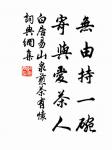 無由持一碗
寄與愛茶人
白居易山泉煎茶有懷
詞典網集